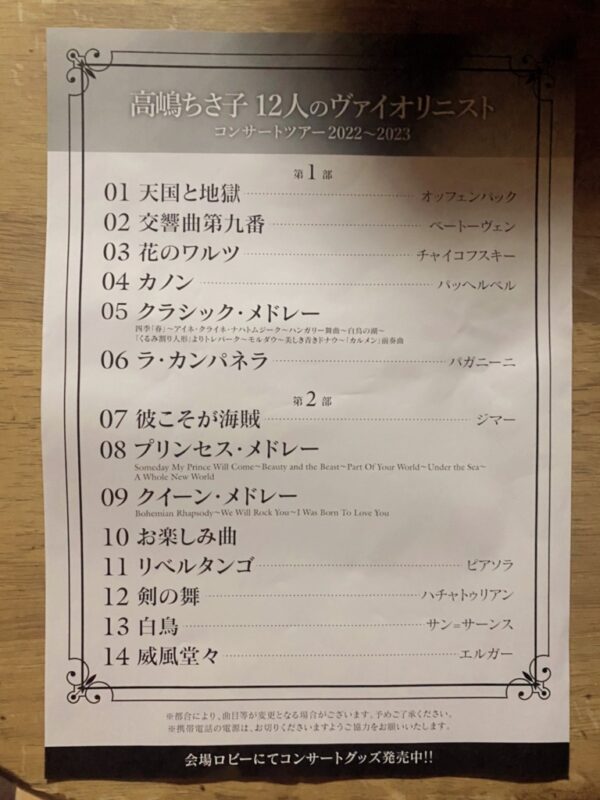 高嶋ちさ子 12人のヴァイオリニスト
コンサートツアー2022〜2023
第1部
01 天国と地獄 オッフェンバック
02 交響曲第九番 ベートーヴェン
03 花のワルツ チャイコフスキー
04 カノン パッヘルベル
05 クラシック・メドレー
四季「春」〜アイネ・クライネ・ナハトムジーク〜ハンガリー舞曲〜白鳥の湖〜
「くるみ割り人形」よりトレパーク〜モルダウ〜美しき青きドナウ〜「カルメン」前奏曲
06 ラ・カンパネラ パガニーニ
第2部
07 彼こそが海賊 ジマー
08 プリンセス・メドレー
Someday My Prince Will Come〜Beauty and the Beast〜Part Of Your World〜Under the Sea〜
A Whole New World
09 クイーン・メドレー
Bohemian Rhapsody〜We Will Rock You〜I Was Born To Love You
10 お楽しみ曲
11 リベルタンゴ ピアソラ
12 剣の舞 ハチャトゥリアン
13 白鳥 サン=サーンス
14 威風堂々 エルガー
※都合により、曲目等が変更となる場合がございます。予めご了承ください。
※携帯電話の電源は、お切りくださいますようご協力をお願いいたします。
会場ロビーにてコンサートグッズ発売中!!